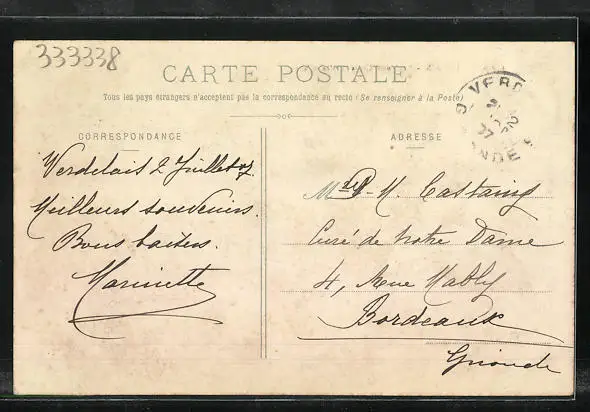 333338
CARTE POSTALE
Tous les pays étrangers n'acceptent pas la correspondance au recto (Se renseigner à la Poste)
CORRESPONDANCE
Verdelais 2 Juillet 07
Meilleurs souvenirs.
Bons baisers.
Marinette
ADRESSE
Castaing
Curé de Notre Dame
4, Rue Mably
Bordeaux
Gironde
VERD